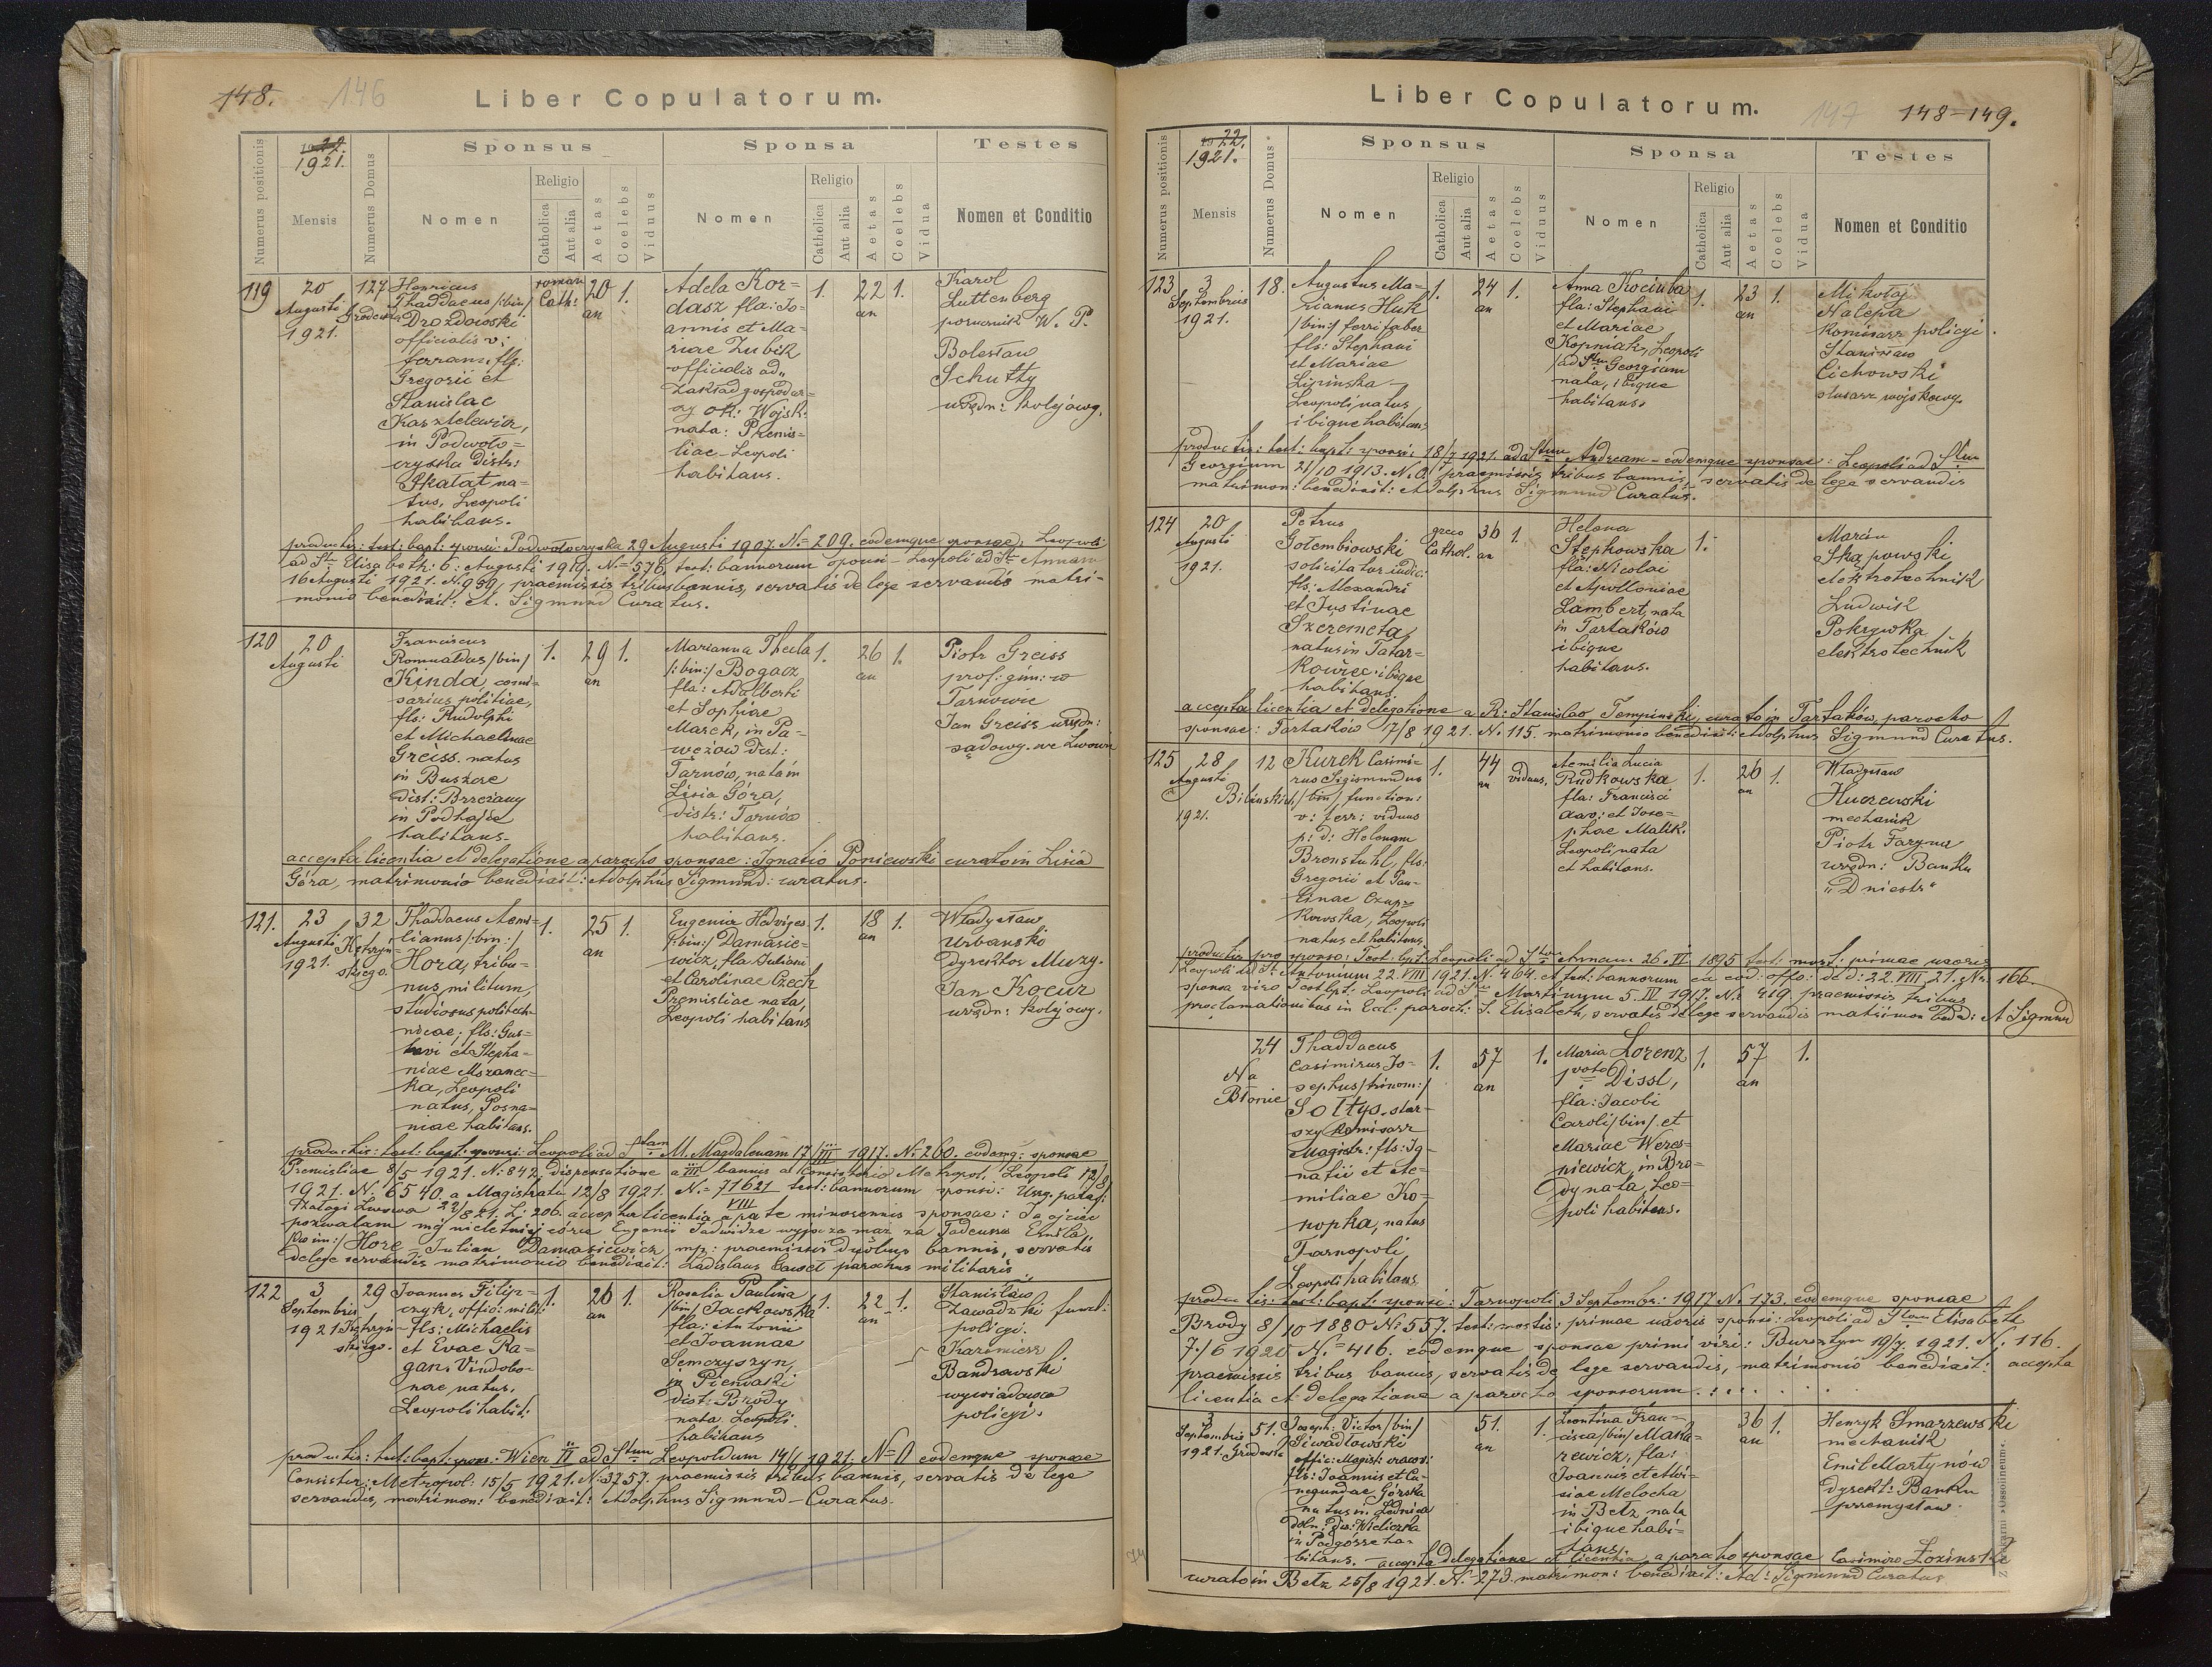 148. 146
Liber Copulatorum.
Numerus positionis
1922.
1921.
Mensis
Numerus Domus
Sponsus
Nomen
Religio
Catholica
Aut alia
Aetas
Coelebs
Viduus
Sponsa
Nomen
Religio
Catholica
Aut alia
Aetas
Coelebs
Vidua
Testes
Nomen et Conditio
119
20
Augusti
1921.
127
Grodecka
Henricus
Thaddaeus /:bin/
Drozdowski
officialis v:
ferram, fls:
Gregorii et
Stanislae
Kasztelewicz,
in Podwoło=
czyska Distr:
Skałat na-
tus, Leopoli
habitans.
roman
Cath:
20
an
1.
Adela Kor-
dasz, fla: Jo-
annis et Ma-
riae Zubik
officialis ad„
Zakład gospodar-
czy Ok: Wojsk:
nata: Premis-
liae - Leopoli
habitans.
1.
22
an
1.
Karol
Luttenberg
porucznik W. P.
Bolesław
Schutty
urzędn: kolejowy.
productis: test: bapt: sponsi: Podwołoczyska 29 Augusti 1907. N= 209. eodemque sponsae, Leopoli
ad St. Elisabeth: 6: Augusti 1919. N= 576, test: bannorum sponsi - Leopoli ad St. Annam
16 Augusti 1921. N. 959, praemissis tribus bannis, servatis de lege servandis matri-
monio benedixit: A. Sigmund Curatus.
120
20
Augusti
Franciscus
Romualdus /bin/
Kinda, comi-
sarius politiae,
fls: Rudolphi
et Michaelinae
Greiss. natus
in Buszcze
dist: Brzeżany
in Podhajce
habitans.
1.
29
an
1.
Marianna Thecla
/:bin:/ Bogacz
fla: Adalberti
et Sophiae
Marek, in Pa-
wężów dist:
Tarnów, nata in
Lisia Góra,
distr: Tarnów
habitans.
1.
26
an
1.
Piotr Greiss
prof: gim: w
Tarnowie
Jan Greiss urzędn:
sądowy. we Lwowie
accepta licentia et delegatione a parocho sponsae: Ignatio Poniewski curato in Lisia
Góra, matrimonio benedixit: Adolphus Sigmund: curatus.
121.
23
Augusti
1921.
32
Kętrzyń=
skiego.
Thaddaeus Aemi-
lianus /:bin:/
Hora, tribu-
nus militum,
studiosus politech-
nicae, fls: Gus-
tavi et Stepha-
niae Moranec-
ka, Leopoli
natus, Posna-
niae habitans.
1.
25
an
1.
Eugenia Hedviges
/:bin:/ Damasie-
wicz, fla Juliani
et Carolinae Czech
Premisliae nata,
Leopoli habitans
1.
18
an
1.
Władysław
Urbański
Dyrektor Muzy.
Jan Kocur
urzędn: kolejowy.
productis: test: bapt: sponsi: Leopoli ad Stam M. Magdalenam 17/III 1917. No 260. eodemq: sponsae
Premisliae 8/5 1921. N: 842, dispensatione a III bannis a Consistorio Metropol. Leopoli 12/8
1921. N. 6540. a Magistratu 12/8 1921. N= 71621 test: bannorum sponsi: Urz. paraf:
Załogi Lwowa 22/VIII 821. L: 206. accepta licentia a patre minorennis sponsae: Ja ojciec
pozwalam mej nieletniej córce Eugenii Jadwidze wyjść za mąż na Tadeusza Emila
/Dw im:/ Horę - Julian Damasiewicz mp: praemissis duobus bannis, servatis
de lege servandis matrimonio benedixit: Ladislaus parochus militaris
122
3
Septembris
1921
29
Kętrzyń-
skiego.
Joannes Filip-
czyk, offic: milit:
fls: Michaelis
et Evae Ra-
gan, Vindobo-
nae natus,
Leopoli habit:
1.
26
an
1.
Rosalia Paulina
/bin/ Jackowska
fla: Antonii
et Joannae
Semczyszyn,
in Pieniaki
Dist: Brody
nata Leopoli
habitans
1.
22
an
1.
Stanisław
Zawadzki funct:
policyi.
Kazimierz
Bandrowski
wywiadowca
policyi.
productis: test: bapt: spons: Wien II ad Stum Leopoldum 14/6 1921. N= 0 eodemque sponsae
Consistor: Metropol: 15/5 1921. N. 3257. praemissis tribus bannis, servatis de lege
servandis, matrimon: benedixit: Adolphus Sigmund - Curatus.
Liber Copulatorum.
147 148-149.
Numerus positionis
1922.
1921.
Mensis
Numerus Domus
Sponsus
Nomen
Religio
Catholica
Aut alia
Aetas
Coelebs
Viduus
Sponsa
Nomen
Religio
Catholica
Aut alia
Aetas
Coelebs
Vidua
Testes
Nomen et Conditio
123
3
Septembris
1921.
18.
Augustus Ma-
rianus Huk
/bin:/ ferri faber
fls: Stephani
et Mariae
Lipinska -
Leopoli, natus
ibique habitans,
1.
24
an
1.
Anna Kociuba
fla: Stephani
et Mariae
Kopniak, Leopoli
/ad Stum Georgium
nata, ibique
habitans.
1.
23
an
1.
Mikołaj
Nalepa
Komisarz policyi.
Stanisław
Cichowski
slusarz wojskowy.
productis: test: bapt: sponsi: 18/7 1921. ad Stum Andream - eodemque sponsae: Leopoli ad Stum
Georgium 21/10 1913. N. 0. praemissis tribus bannis, servatis de lege servandis
matrimon: benedixit: Adolphus Sigmund Curatus.
124
20
Augusti
1921.
Petrus
Gołembiowski
solicitator iudic:
fls: Alexandri
et Justinae
Szeremeta,
natus in Tatar-
kowiec ibique
habitans
greco
Cathol.
36
an
1.
Helena
Stepkowska
fla: Nicolai
et Apolloniae
Lambert, nata
in Tartaków
ibique
habitans.
1.
Marcin
Skąpowski
elektrotechnik
Ludwik
Pokrywka
elektrotechnik
accepta licentia et delegatione a R: Stanislao Tempinski, curato in Tartaków, parocho
sponsae: Tartaków 17/8 1921. N. 115. matrimonio benedixit: Adolphus Sigmund Curatus.
125
28
Augusti
1921.
12
Bilinskich
Kurek Casimi-
rus Sigismundus
/bin/, function:
v: ferr: viduus
p: d: Helenam
Brenstuhl, fls:
Gregorii et Pau-
linae Czup-
kowska, Leopoli
natus et habitans
1.
44
an
viduus.
Aemilia Lucia
Rudkowska
fla: Francisci
Xav: et Jose-
phae Malik.
Leopoli, nata
et habitans.
1.
26
an
1.
Władysław
Huczewski
mechanik
Piotr Faryna
urzędn: Banku
„Dniestr“
productis pro sponso: Test: bpt: Leopoli ad Stam Annam 26. VI 1895 test: mort: primae uxoris
Leopoli ad St. Antonium 22. VIII 1921. N. 464. et test: bannorum ea eod: offo: de d: 22. VIII. 21. Nr. 166.
sponsa vero Test bpt: Leopoli ad Stum Martinum 5. IV 1917. Nr 419. praemissis tribus
proclamationibus in Eccl. paroch: S. Elisabeth, servatis de lege servandis matrimon bened: A Sigmund
24
Na
Błonie
Thaddaeus
Casimirus Jo-
sephus /trinom:/
Sołtys. star-
szy Komisarz
Magistr: fls: Ig-
natii et Ae-
miliae Ko-
nopka, natus
Tarnopoli,
Leopoli habitans
1.
57
an
1.
Maria Lorenz
voto
Dissl,
fla: Jacobi
Caroli /bin/ et
Mariae Weres-
niewicz, in Bro-
dy nata, Leo-
poli habitans.
1.
57
an
1.
productis: test: bapt: sponsi: Tarnopoli 3 Septembr: 1917 N. 173. eodemque sponsae
Brody 8/10 1880 No 557. test: mortis: primae uxoris sponsi: Leopoli ad Stam Elisabeth
7./6 1920 N.= 416. eodemque sponsae primi viri: Bursztyn 19/7. 1921. N. 116.
praemissis tribus bannis, servatis de lege servandis, matrimonio benedixit: accepta
licentia et delegatione a parocho sponsorum. : . . . .
3
Septembris
1921.
51.
Grodecka
Joseph: Victor /bin/
Siwadłowski
offic: Magist: cracov:
fls: Joannis et Cu-
negundae Górska
natus in Lednica
doln: dis: Wieliczka
in Podgórze ha-
bitans.
51.
an
1.
Leontina Fran-
cisca /bin/ Maka-
rewicz, fla:
Joannis et Aloi-
siae Melocha
in Bełz, nata
ibique habi-
tans.
36
an
1.
Henryk Smarzewski
mechanik
Emil Martynów
Dyrekt: Banku
przemysłow.
accepta delegatione et licentia a parocho sponsae Casimiro Łozinski
curato in Bełz 25/8 1921. N. 273. matrimon: benedixit: Ad: Sigmund Curatus
74